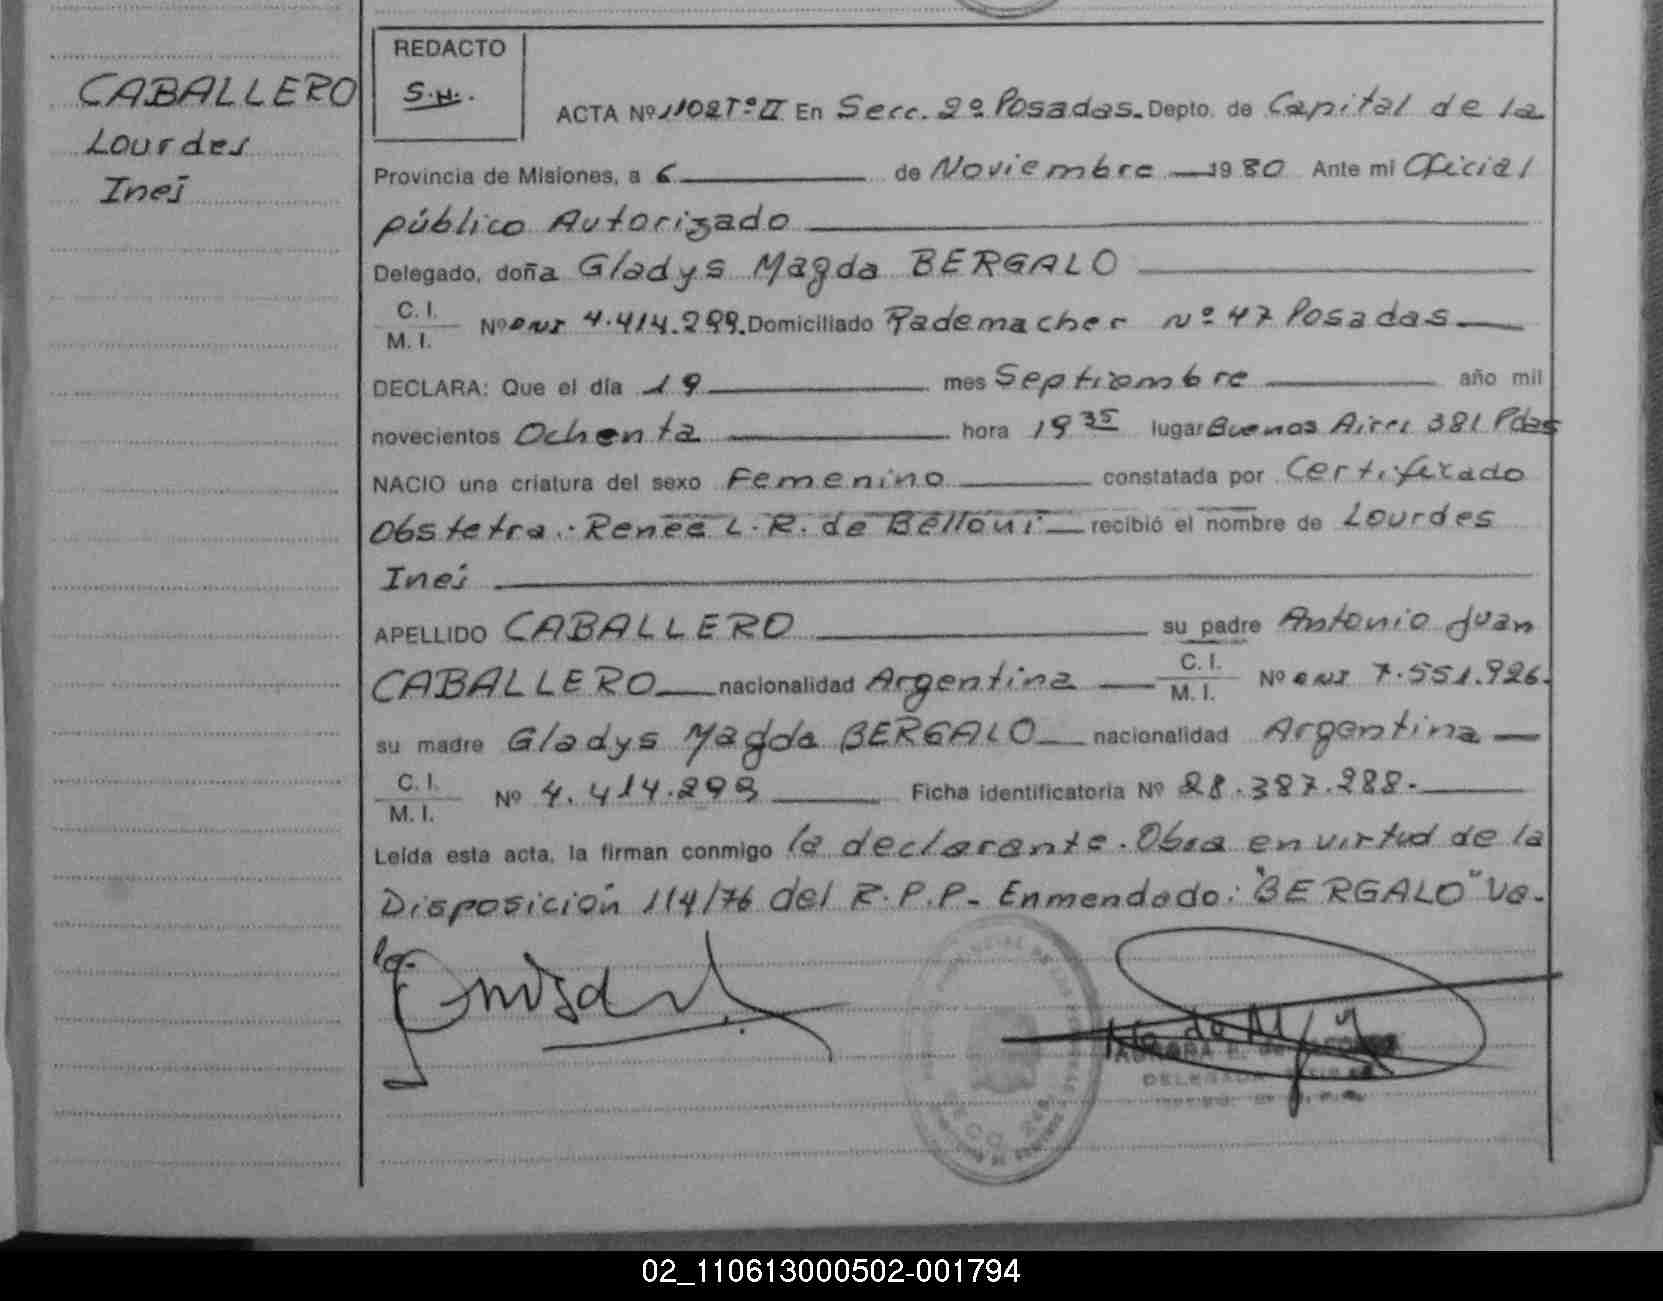 CABALLERO
Lourdes
Inés
REDACTO
S.H.
ACTA Nº 1102 Tº II En Secc. 2º Posadas. Depto. de Capital de la
Provincia de Misiones, a 6 de Noviembre 1980 Ante mi Oficial
público Autorizado
Delegado, doña Gladys Magda BERGALO
C. I.
M. I.
Nº DNI 4.414.299. Domiciliado Rademacher Nº 47 Posadas
DECLARA: Que el día 19 mes Septiembre año mil
novecientos Ochenta hora 19 35 lugar Buenos Aires 381 Pdas
NACIO una criatura del sexo Femenino constatada por Certificado
Obstetra. Renée L. R. de Belloni recibió el nombre de Lourdes
Inés
APELLIDO CABALLERO su padre Antonio Juan
CABALLERO nacionalidad Argentina C. I. M. I. Nº DNI 7.551.926.
su madre Gladys Magda BERGALO nacionalidad Argentina
C. I.
M. I.
Nº 4.414.299 Ficha identificatoria Nº 28.387.288.
Leída esta acta, la firman conmigo la declarante. Obra en virtud de la
Disposición 114/76 del R.P.P. Enmendado: "BERGALO" Va-
le.
DELEGADA
02_110613000502-001794